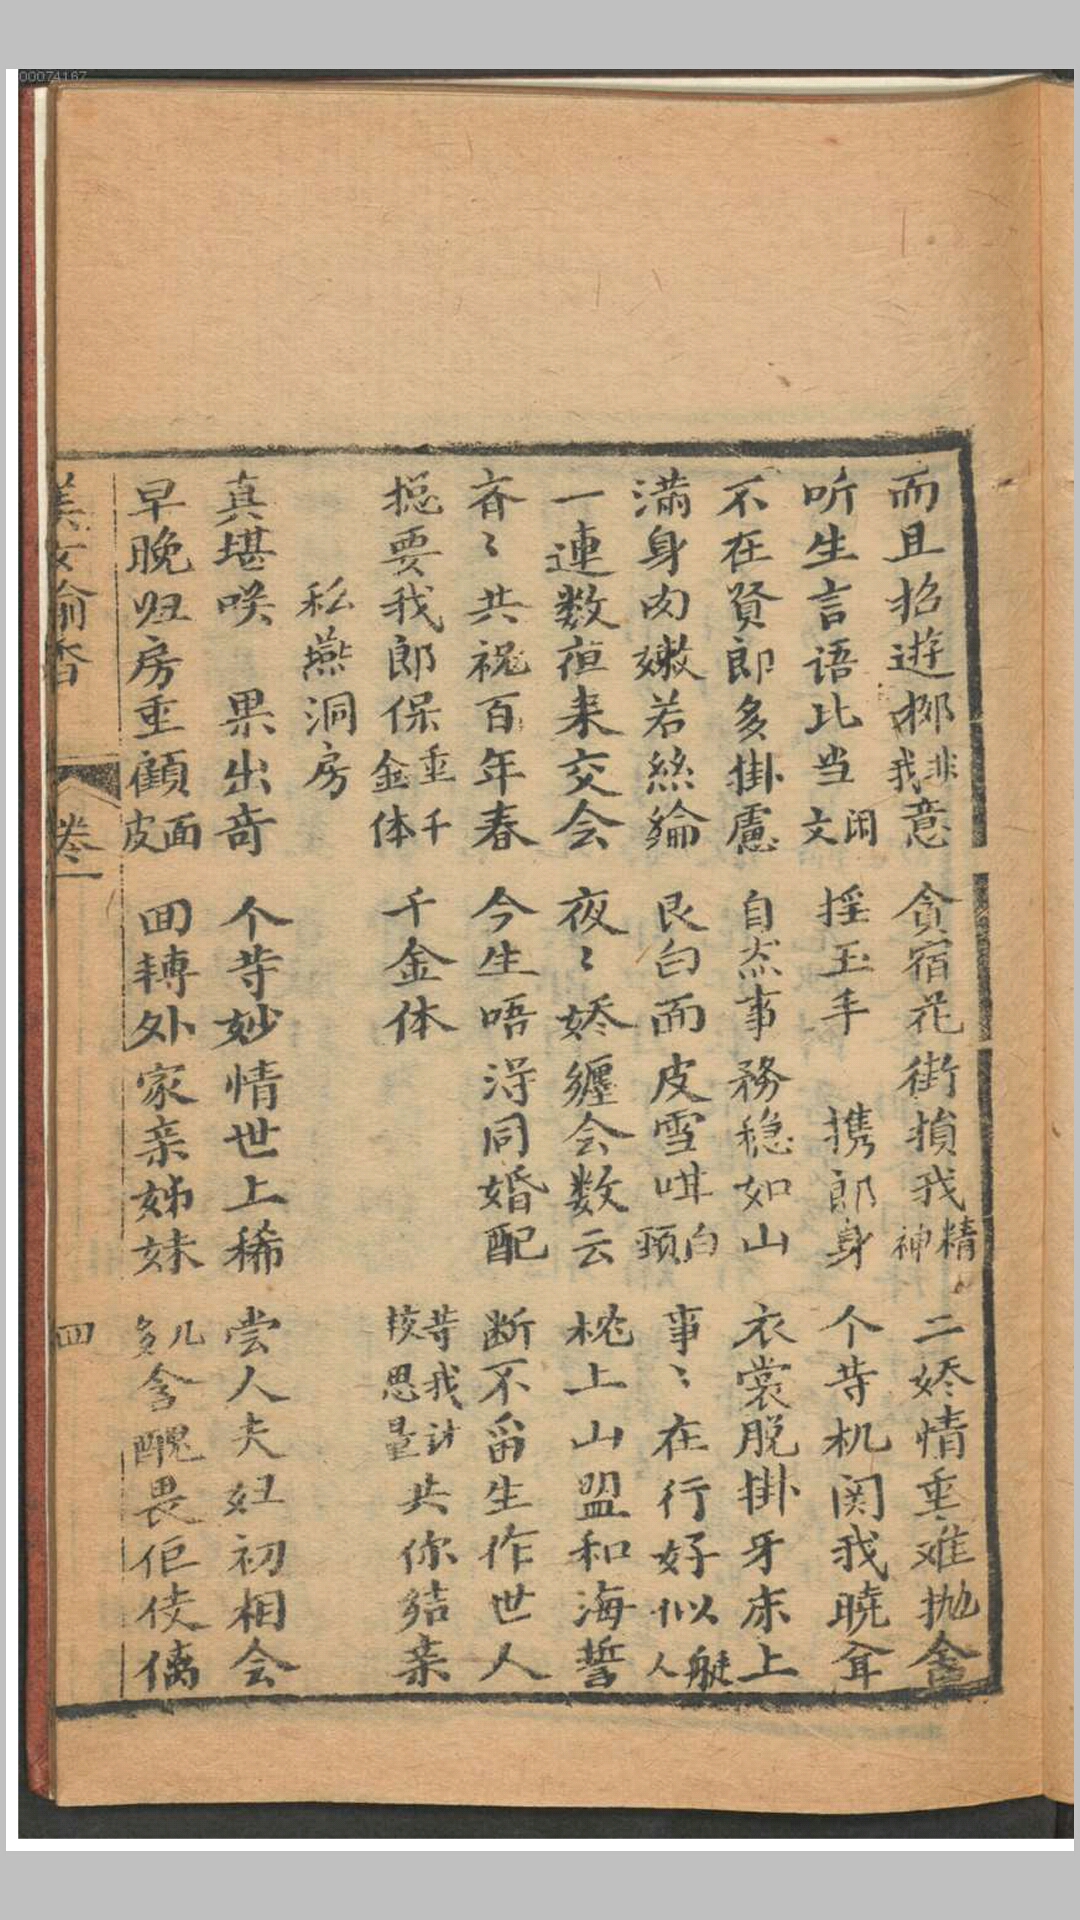 00074167
而且招遊柳非我意 貪宿花街損我精神 二娇情重难抛舍
听生言语比当闲文 摇玉手 携郎身 个苛机関我曉
不在賢郎多掛慮 自然事務稳如山 衣裳脱掛牙床上
满身肉嫩若絲綸 良白而皮雪咁白頸 事〻在行好似艇人
一連数夜来交会 夜〻娇纏会数云 枕上山盟和海誓
夲〻共祝百年春 今生唔淂同婚配 断不留生作世人
揔要我郎保重千金体 千金体 苛我计核思量 共你結亲
私燕洞房
真堪咲 果出奇 个苛妙情世上稀 尝人夫妇初相会
早晚归房重顧面皮 回轉外家亲姊妹 几多含醜畏佢使
美女偷香 卷一 四